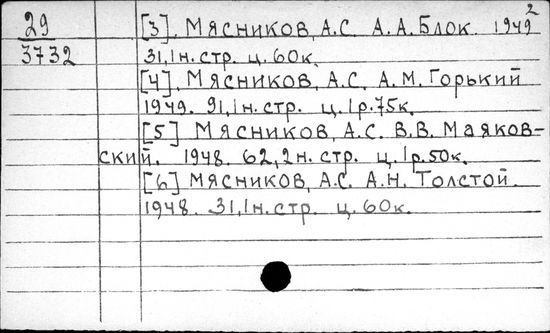 2
29 [3]. Мясников, А.С. А.А. Блок. 1949
3732 31,1н.стр. ц. 60к.
[4]. Мясников, А.С. А.М. Горький
1949. 91,1н.стр. ц. 1р.75к.
[5] Мясников, А.С. В.В. Маяков-
ский. 1948. 62,2н.стр. ц. 1р.50к.
[6] Мясников, А.С. А.Н. Толстой.
1948. 31,1н.стр. ц. 60к.